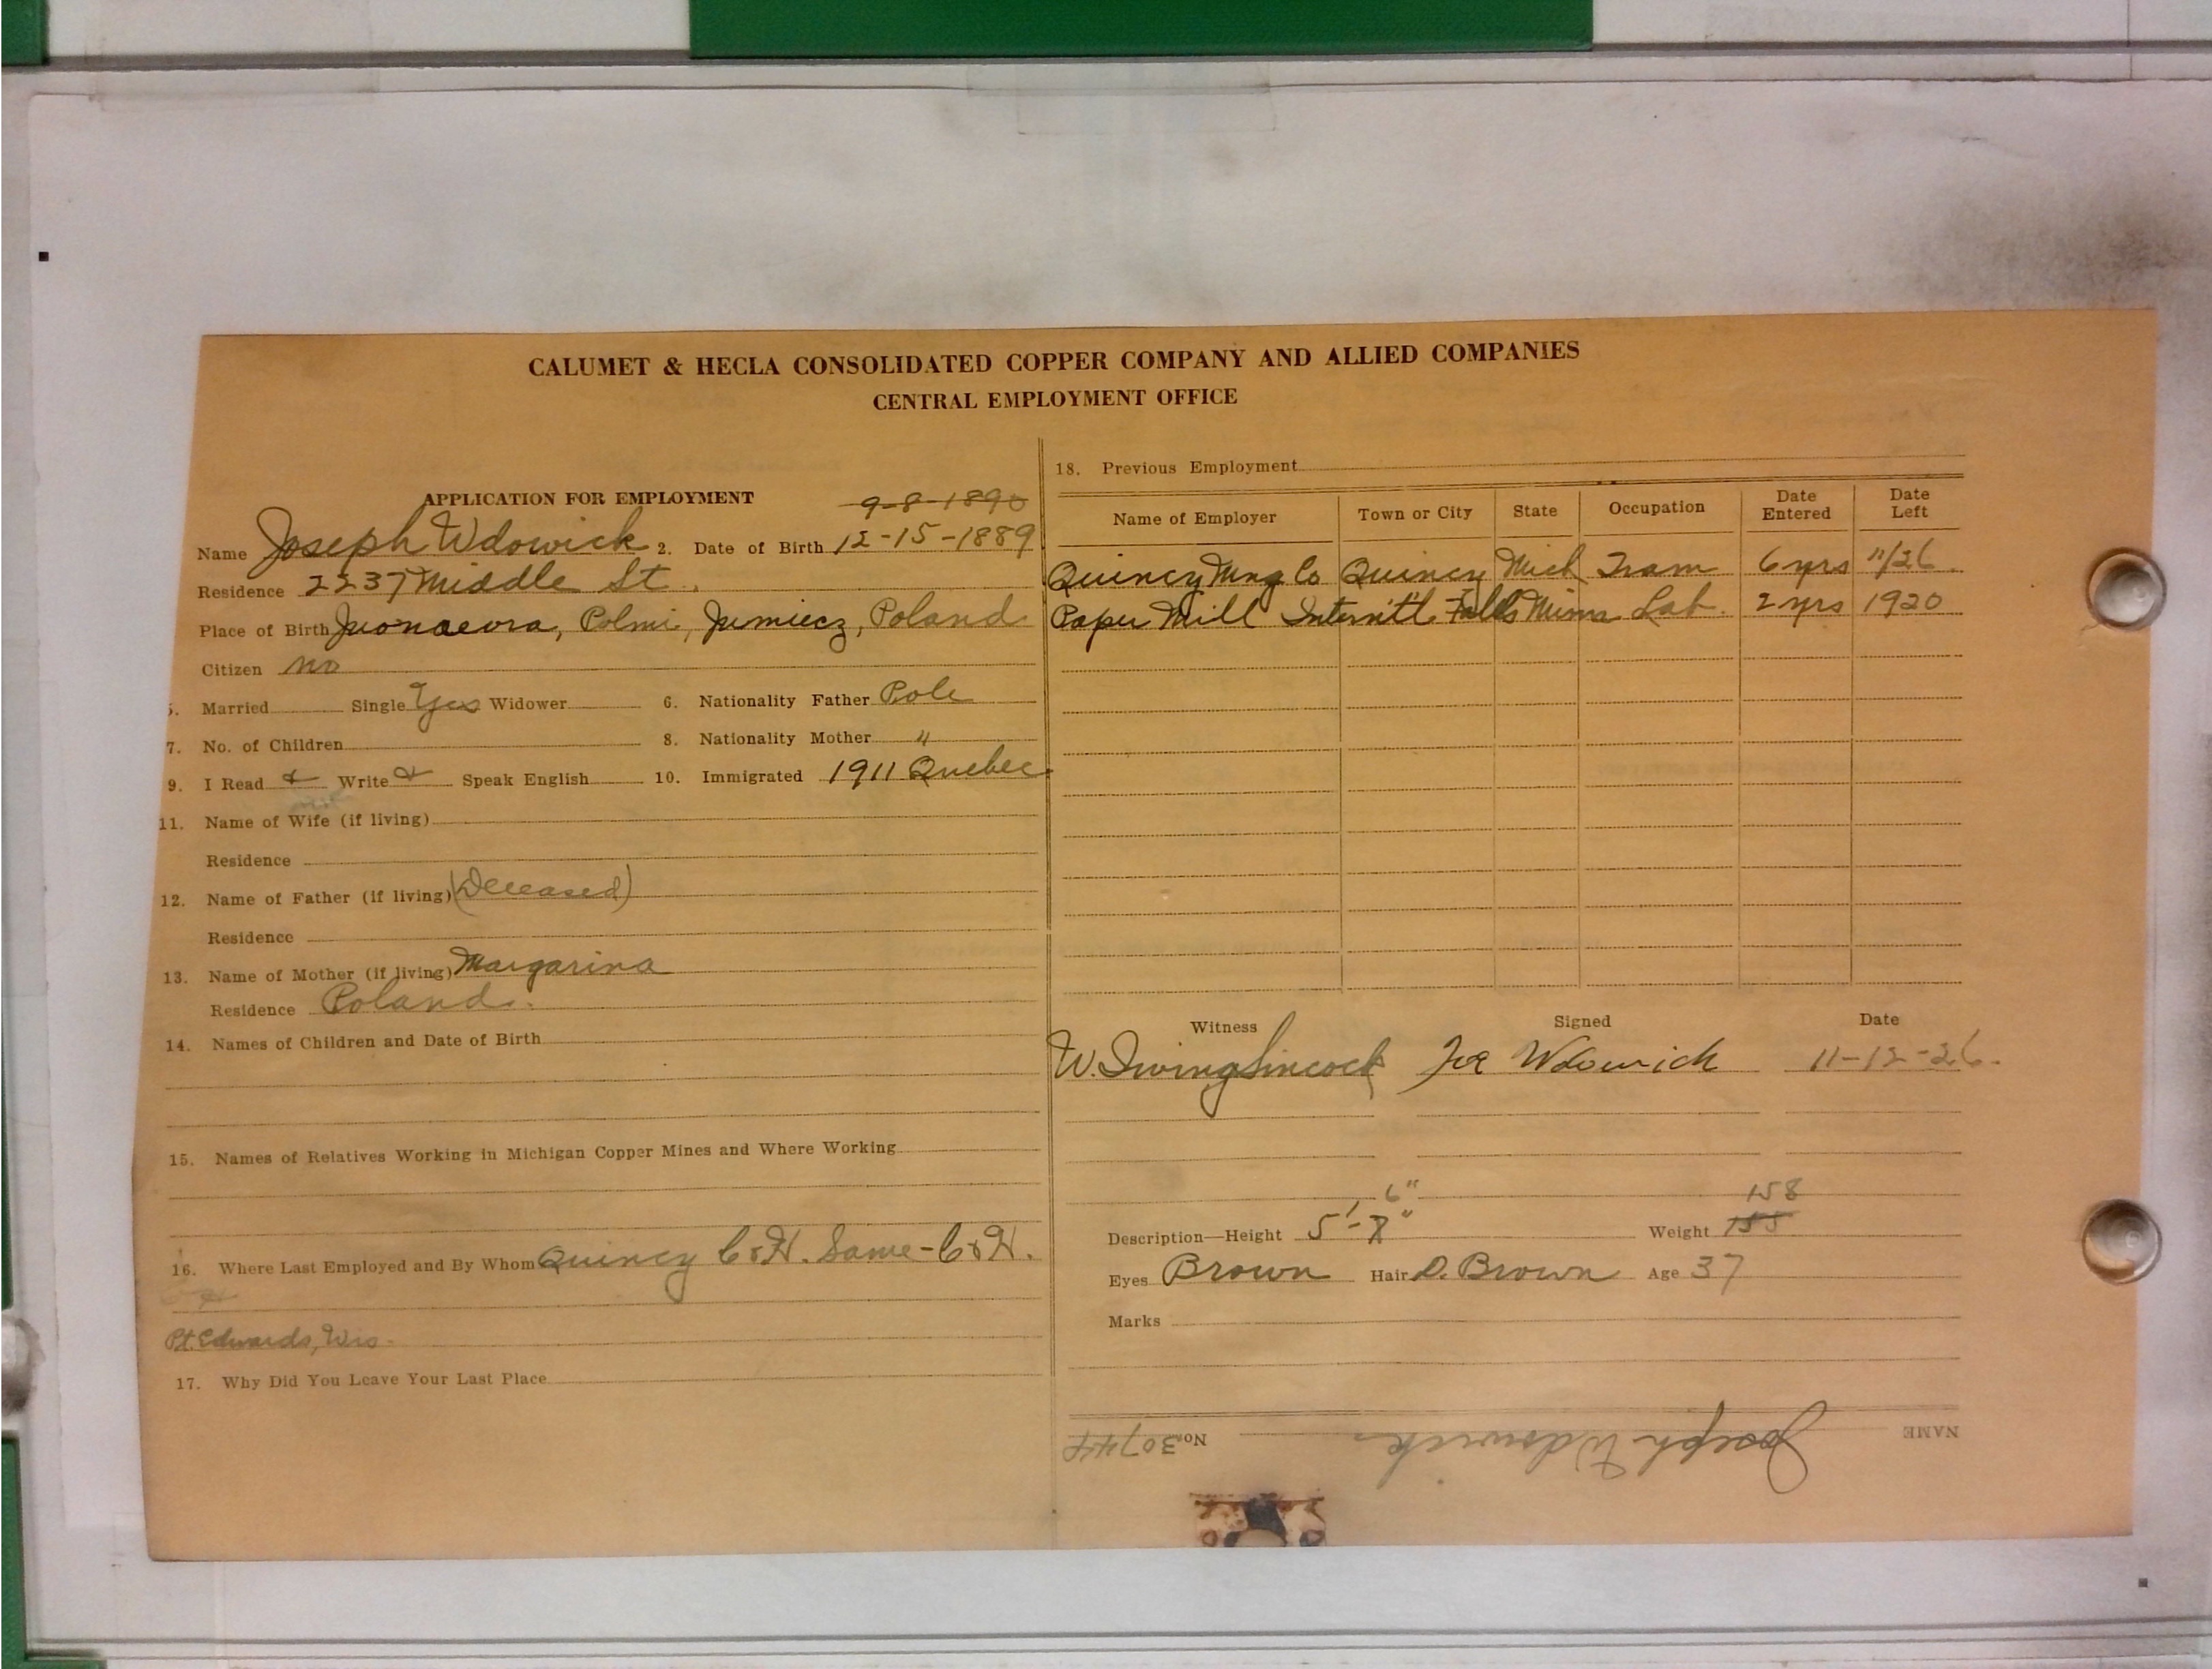 CALUMET & HECLA CONSOLIDATED COPPER COMPANY AND ALLIED COMPANIES
CENTRAL EMPLOYMENT OFFICE
APPLICATION FOR EMPLOYMENT 9-8-1890
Name Joseph Wdowick 2. Date of Birth 12-15-1889
Residence 2237 Middle St.
Place of Birth Poland
Citizen no
5. Married Single Yes Widower 6. Nationality Father Pole
7. No. of Children 8. Nationality Mother "
9. I Read & Write & Speak English 10. Immigrated 1911 Quebec
11. Name of Wife (if living)
Residence
12. Name of Father (if living) (Deceased)
Residence
13. Name of Mother (if living) Margarina
Residence Poland.
14. Names of Children and Date of Birth
15. Names of Relatives Working in Michigan Copper Mines and Where Working
16. Where Last Employed and By Whom Quincy C&H. Same-C&H.
Pt. Edwards, Wis-
17. Why Did You Leave Your Last Place
18. Previous Employment
Name of Employer Town or City State Occupation Date Entered Date Left
Quincy Mng Co Quincy Mich Tram 6 yrs 11/26
Paper Mill Internt'l Falls Minn Lab. 2 yrs 1920
Witness Signed Date
W. Irving Sincock Joe Wdowick 11-12-26.
6" 158
Description—Height 5'-7" Weight 155
Eyes Brown Hair D. Brown Age 37
Marks
NAME Joseph Wdowick No. 30744